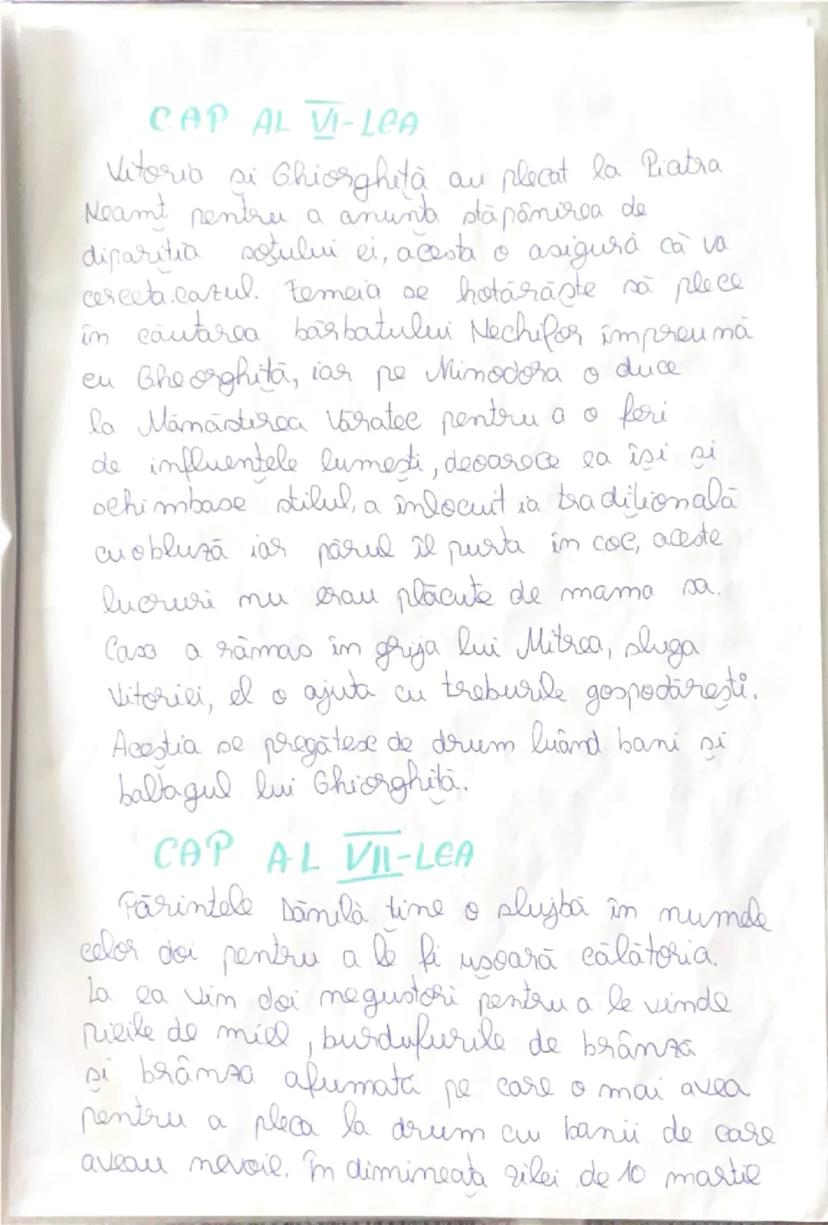 CAP AL VI-LEA
Vitoria și Ghiorghiță au plecat la Piatra
Neamț pentru a anunța stăpânirea de
dipariția soțului ei, acesta o asigură că va
cerceta cazul. Femeia se hotărăște să plece
în căutarea bărbatului Nechifor împreună
cu Gheorghiță, iar pe Minodora o duce
la Mănăstirea Văratec pentru a o feri
de influențele lumești, deoarece ea își și
schimbase stilul, a înlocuit ia tradițională
cu obluză iar părul îl purta în coc, aceste
lucruri nu erau plăcute de mama sa.
Casa a rămas în grija lui Mitrea, sluga
Vitoriei, el o ajuta cu treburile gospodărești.
Aceștia se pregătesc de drum luând bani și
baltagul lui Ghiorghiță.
CAP AL VII-LEA
Părintele Dănilă ține o slujbă în numele
celor doi pentru a le fi ușoară călătoria.
La ea vin doi negustori pentru a le vinde
pieile de miel, burdufurile de brânză
și brânza afumată pe care o mai avea
pentru a pleca la drum cu banii de care
aveau nevoie. În dimineața zilei de 10 martie